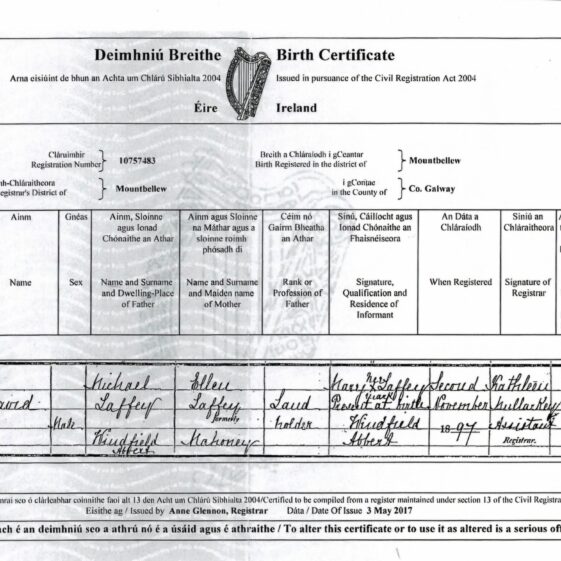 Deimhniú Breithe Birth Certificate
Arna eisiúint de bhun an Achta um Chlárú Sibhialta 2004 Issued in pursuance of the Civil Registration Act 2004
Éire Ireland
Cláruimhir
Registration Number } 10757483
Breith a Chláraíodh i gCeantar
Birth Registered in the district of } Mountbellew
th-Chláraitheora
egistrar's District of } Mountbellew
i gContae
in the County of } Co. Galway
Ainm
Name
Gnéas
Sex
Ainm, Sloinne
agus Ionad
Chónaithe an Athar
Name and Surname
and Dwelling-Place
of Father
Ainm agus Sloinne
na Máthar agus a
sloinne roimh
phósadh di
Name and Surname
and Maiden name
of Mother
Céim nó
Gairm Bheatha
an Athar
Rank or
Profession of
Father
Síniú, Cáilíocht agus
Ionad Chónaithe an
Fhaisnéiseora
Signature,
Qualification and
Residence of
Informant
An Dáta a
Chláraíodh
When Registered
Síniú an
Chláraitheora
Signature of
Registrar
Male
Michael
Laffey
Windfield
Abbert
Ellen
Laffey
formerly
Mahoney
Land
holder
Mary X Laffey
her
mark
Present at birth
Windfield
Abbert
Second
November
1897
Kathleen
Mullarkey
Assistant
Registrar.
nraí seo ó chlárleabhar coinnithe faoi alt 13 den Acht um Chlárú Sibhialta 2004/Certified to be compiled from a register maintained under section 13 of the Civil Registra
Eisithe ag / Issued by Anne Glennon, Registrar Dáta / Date Of Issue 3 May 2017
ach é an deimhniú seo a athrú nó é a úsáid agus é athraithe / To alter this certificate or to use it as altered is a serious off